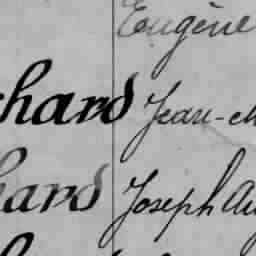 Eugène
chard Jean-M
hard Joseph Au